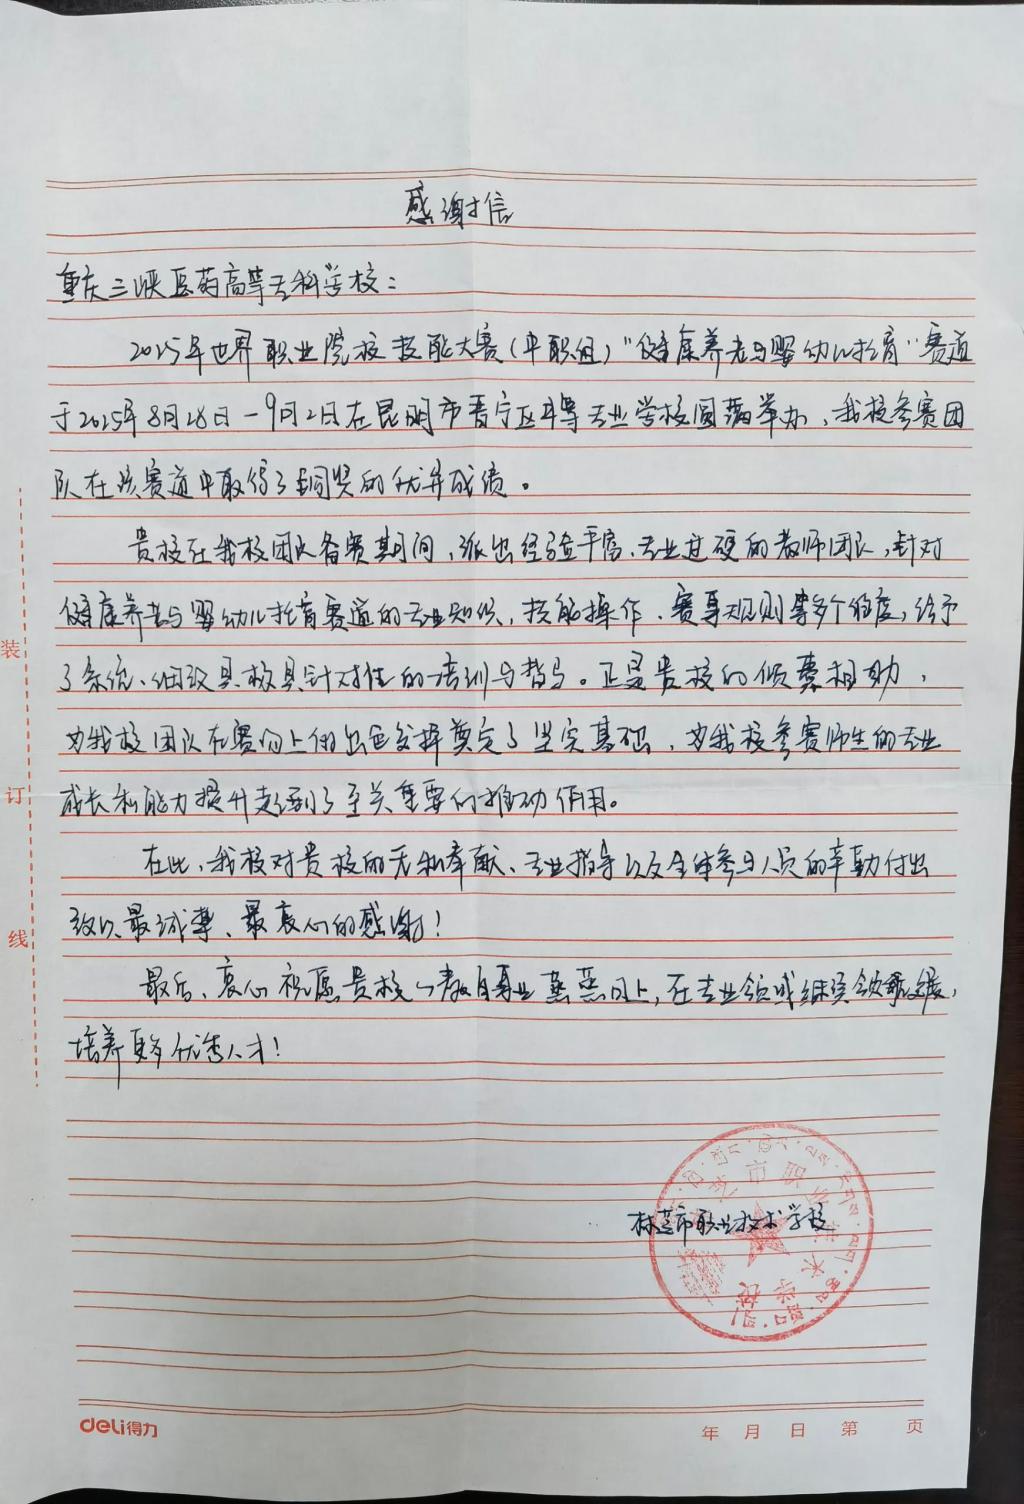 感谢信
重庆三峡医药高等专科学校：
2025年世界职业院校技能大赛（中职组）“健康养老与婴幼儿托育”赛道
于2025年8月28日-9月2日在昆明市晋宁区中等专业学校圆满举办，我校参赛团
队在该赛道中取得了铜奖的优异成绩。
贵校在我校团队备赛期间，派出经验丰富、专业过硬的教师团队，针对
健康养老与婴幼儿托育赛道的专业知识，技能操作、赛事规则等多个维度，给予
了系统、细致具极具针对性的培训与指导。正是贵校的倾囊相助，
为我校团队在赛场上的出色发挥奠定了坚实基础，为我校参赛师生的专业
成长和能力提升起到了至关重要的推动作用。
在此，我校对贵校的无私奉献、专业指导以及全体参与人员的辛勤付出
致以最诚挚、最衷心的感谢！
最后、衷心祝愿贵校教育事业蒸蒸日上，在专业领域继续领航发展，
培养更多优秀人才！
林芝市职业技术学校
市职业技术学校
装
订
线
deli得力
年 月 日 第 页